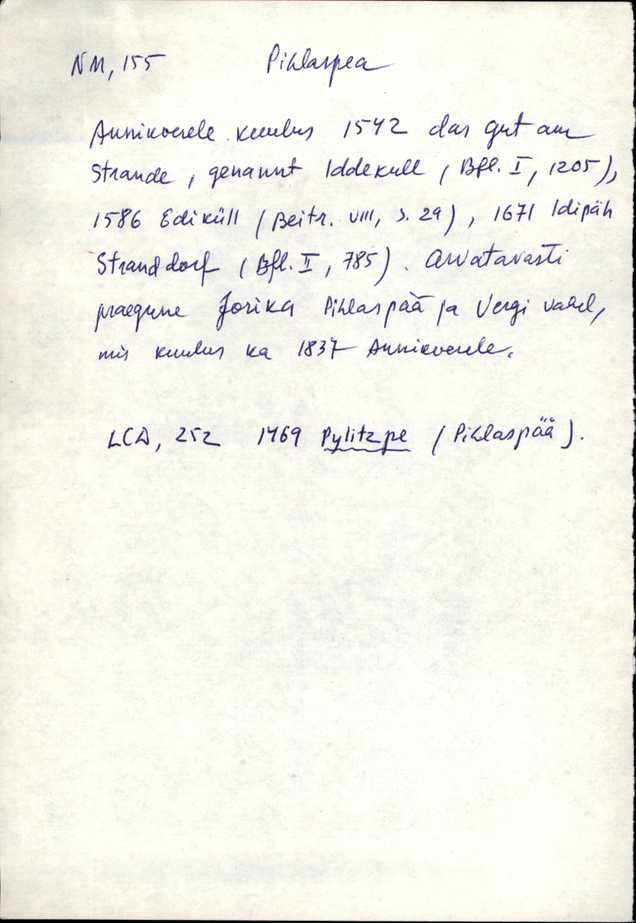 NM, 155 Pihlaspea
Annikverele kuulus 1542 das Gut am
Strande, genannt Iddekull (Bfl. I, 1205),
1586 Ediküll (Beitr. VIII, S. 29), 1671 Idipäh
Stranddorf (Bfl. II, 785). Arvatavasti
praegune Jorika Pihlaspää ja Vergi vahel,
mis kuulus ka 1837 Annikverele.
LCD, 252 1469 Pylitzpe (Pihlaspää).